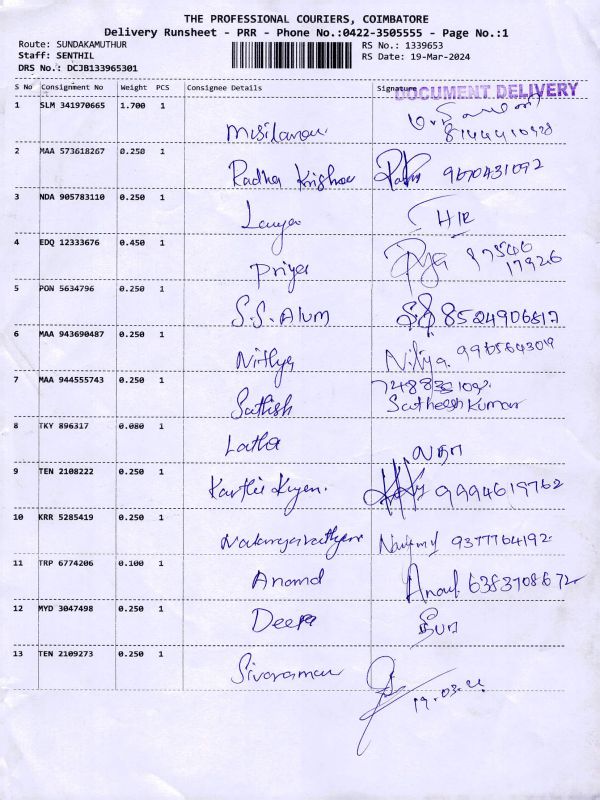 THE PROFESSIONAL COURIERS, COIMBATORE
Delivery Runsheet - PRR - Phone No.:0422-3505555 - Page No.:1
Route: SUNDAKAMUTHUR RS No.: 1339653
Staff: SENTHIL RS Date: 19-Mar-2024
DRS No.: DCJB133965301
S No Consignment No Weight PCS Consignee Details Signature
DOCUMENT DELIVERY
1 SLM 341970665 1.700 1
2 MAA 573618267 0.250 1
Radha Krishna 9670431092
3 NDA 905783110 0.250 1
4 EDQ 12333676 0.450 1
Priya Priya 87546
17926
5 PON 5634796 0.250 1
S.S. Alum 8524906817
6 MAA 943690487 0.250 1
Nithya Nithya 9965643019
7 MAA 944555743 0.250 1
Sathish Satheesh Kumar
8 TKY 896317 0.080 1
Latha லதா
9 TEN 2108222 0.250 1
9994619762
10 KRR 5285419 0.250 1
9377764192
11 TRP 6774206 0.100 1
Anand Anand 6383708672
12 MYD 3047498 0.250 1
Deepa தீபா
13 TEN 2109273 0.250 1
Sivaraman
19.03.24